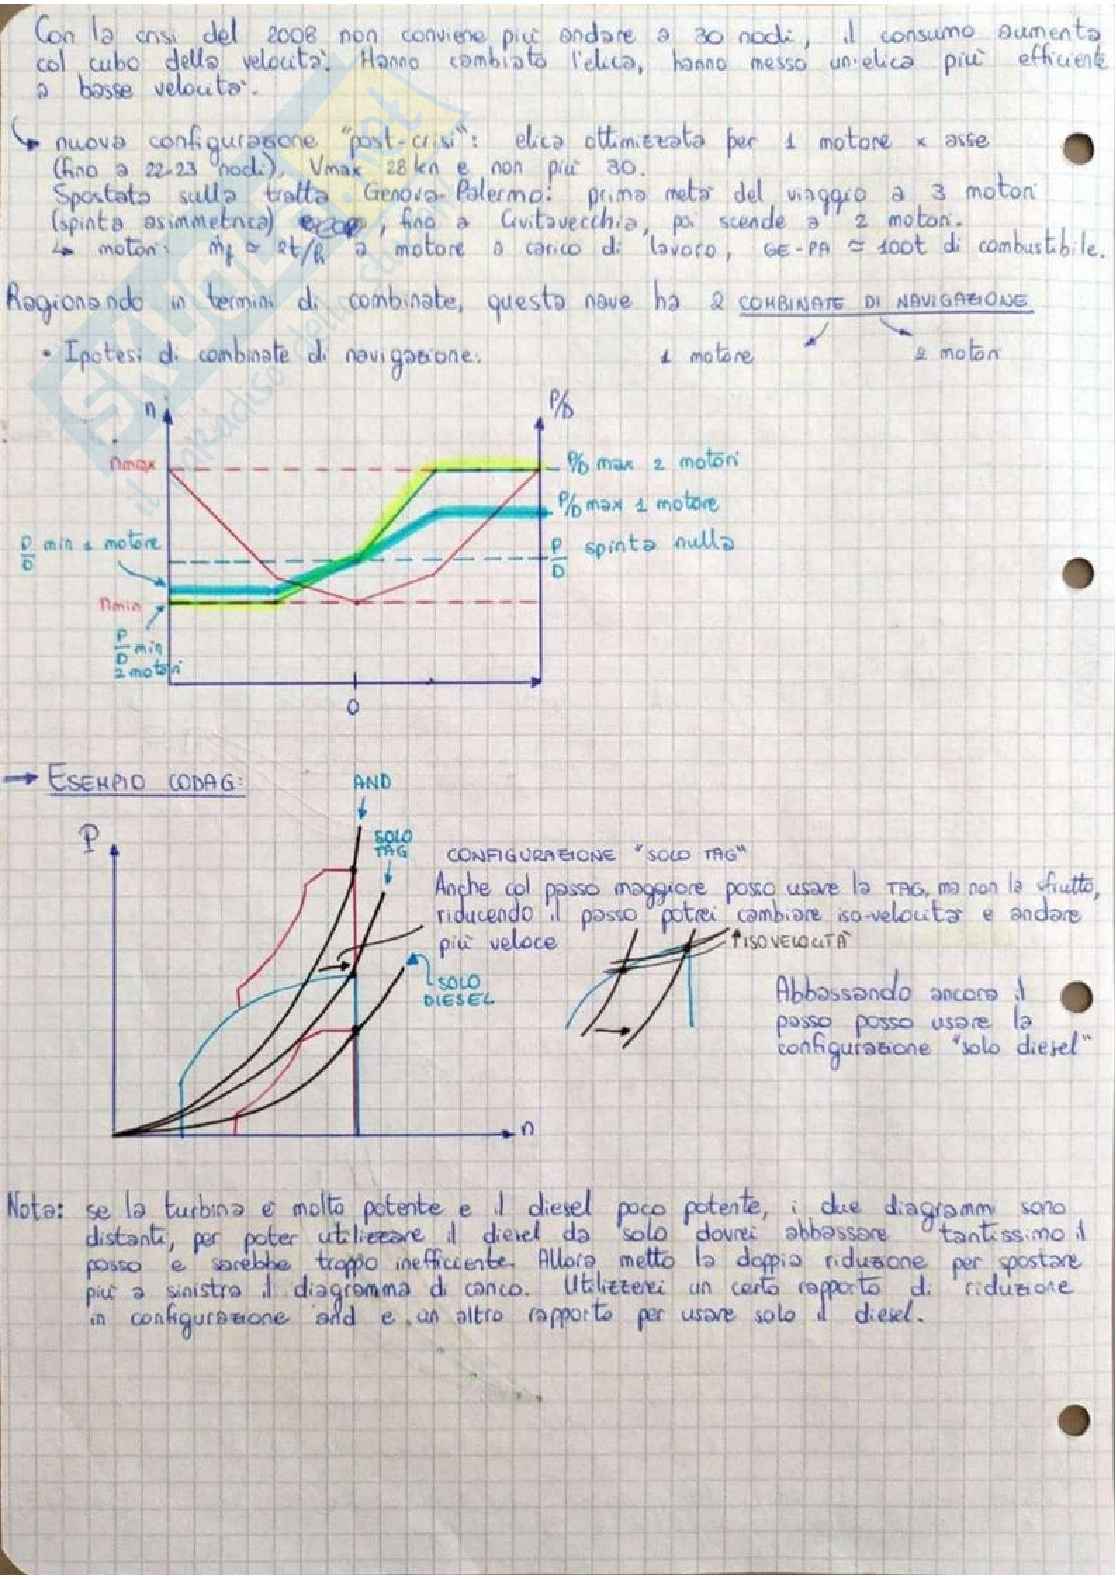 Con la crisi del 2008 non conviene più andare a 30 nodi, il consumo aumenta
col cubo della velocità. Hanno cambiato l'elica, hanno messo un'elica più efficiente
a basse velocità.
↳ nuova configurazione "post-crisi": elica ottimizzata per 1 motore x asse
(fino a 22-23 nodi), Vmax 28 kn e non più 30.
Spostata sulla tratta Genova-Palermo: prima metà del viaggio a 3 motori
(spinta asimmetrica), fino a Civitavecchia, poi scende a 2 motori.
↳ motori: ṁf ≃ 2t/h a motore a carico di lavoro, GE-PA ≃ 100t di combustibile.
Ragionando in termini di combinate, questa nave ha 2 COMBINATE DI NAVIGAZIONE
• Ipotesi di combinate di navigazione: 1 motore 2 motori
n P/D
nmax P/D max 2 motori
P/D max 1 motore
P/D min 1 motore P/D spinta nulla
nmin
P/D min
2 motori
0
→ ESEMPIO CODAG: AND
P SOLO
TAG
CONFIGURAZIONE "SOLO TAG"
Anche col passo maggiore posso usare la TAG, ma non la sfrutto,
riducendo il passo potrei cambiare iso-velocità e andare
più veloce
↑ISOVELOCITÀ
SOLO
DIESEL
Abbassando ancora il
passo posso usare la
configurazione "solo diesel"
n
Nota: se la turbina è molto potente e il diesel poco potente, i due diagrammi sono
distanti, per poter utilizzare il diesel da solo dovrei abbassare tantissimo il
passo e sarebbe troppo inefficiente. Allora metto la doppia riduzione per spostare
più a sinistra il diagramma di carico. Utilizzerei un certo rapporto di riduzione
in configurazione and e un altro rapporto per usare solo il diesel.